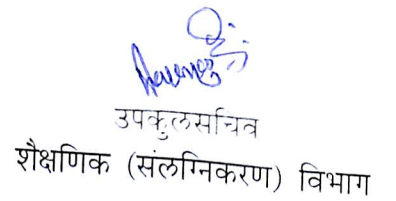 उपकुलसचिव
शैक्षणिक (संलग्निकरण) विभाग